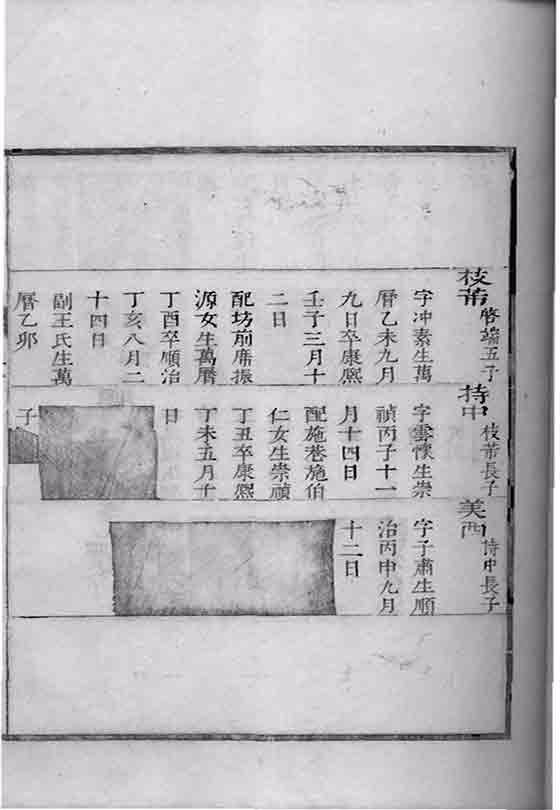 枝芾 脩端五子
字冲素生萬
曆乙未九月
九日卒康熈
壬子三月十
二日
配坊前席振
源女生萬曆
丁酉卒順治
丁亥八月二
十四日
副王氏生萬
曆乙卯
持中 枝芾長子
字雲懷生崇
禎丙子十一
月十四日
配施巷施伯
仁女生崇禎
丁丑卒康熈
丁未五月十
日
子
美西 持中長子
字子肅生順
治丙申九月
十二日